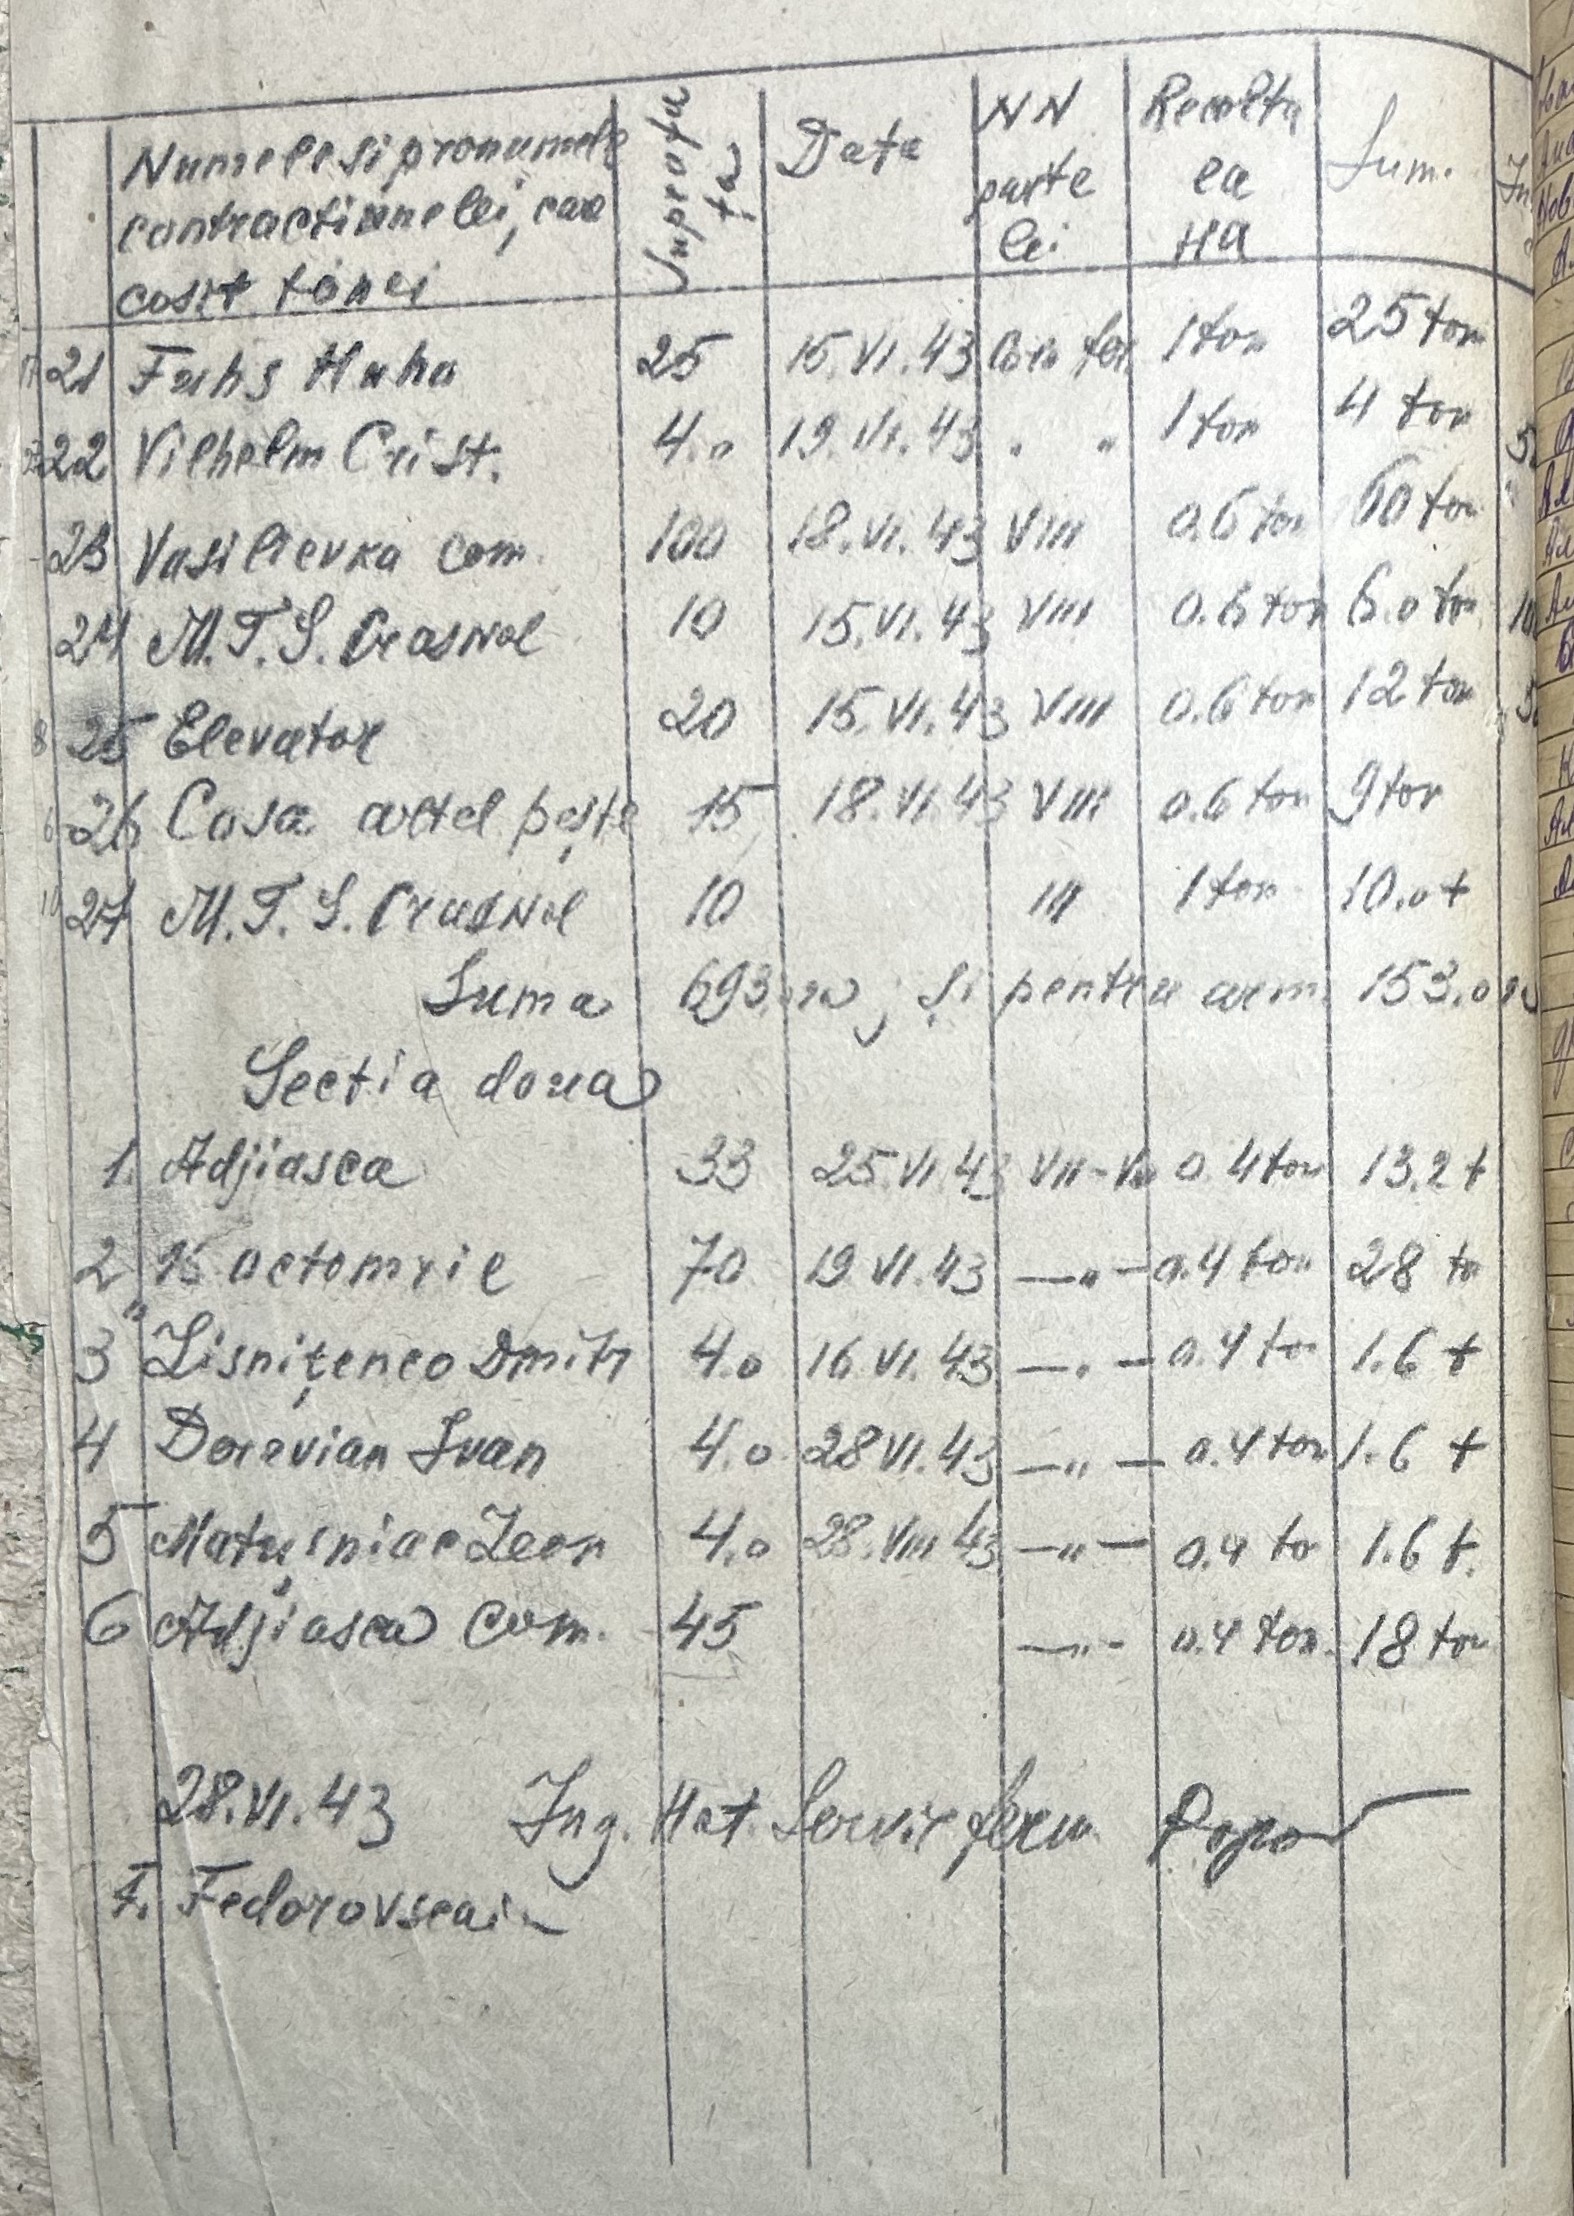 Numele si pronumele contractinnelei, care cosit fânei | Suprafata | Data | NN partelei | Recolta ea HA | Sum.
21 Fuhs Huho 25 15.VI.43 1 ton 25 ton
22 Vilhelm Crist. 4.0 19.VI.43 " " 1 ton 4 ton
23 Vasilievka com. 100 18.VI.43 VIII 0.6 ton 60 ton
24 M.T.S. Crasnol 10 15.VI.43 VIII 0.6 ton 6.0 ton
25 Elevator 20 15.VI.43 VIII 0.6 ton 12 ton
26 Cosa artel pește 15 18.VI.43 VIII 0.6 ton 9 ton
27 M.T.S. Crasnol 10 III 1 ton 10.0 t
Suma 693 și pentru arm. 153.0
Sectia doua
1. Adjiasca 33 25.VI.43 0.4 ton 13.2 t
2 octomrie 70 19 VI.43 —"— 0.4 ton 28 to
3 Lisnițenco Dmitr 4.0 16.VI.43 —"— 0.4 ton 1.6 t
4 Dorevian Ivan 4.0 28 VI.43 —"— 0.4 ton 1.6 t
5 Matușniac Leon 4.0 28.VIII 43 —"— 0.4 to 1.6 t.
6 Adjiasca com. 45 —"— 0.4 ton. 18 ton
28.VI.43 Ing. Hot. Servic ferm. Popov
F. Fedorovscai